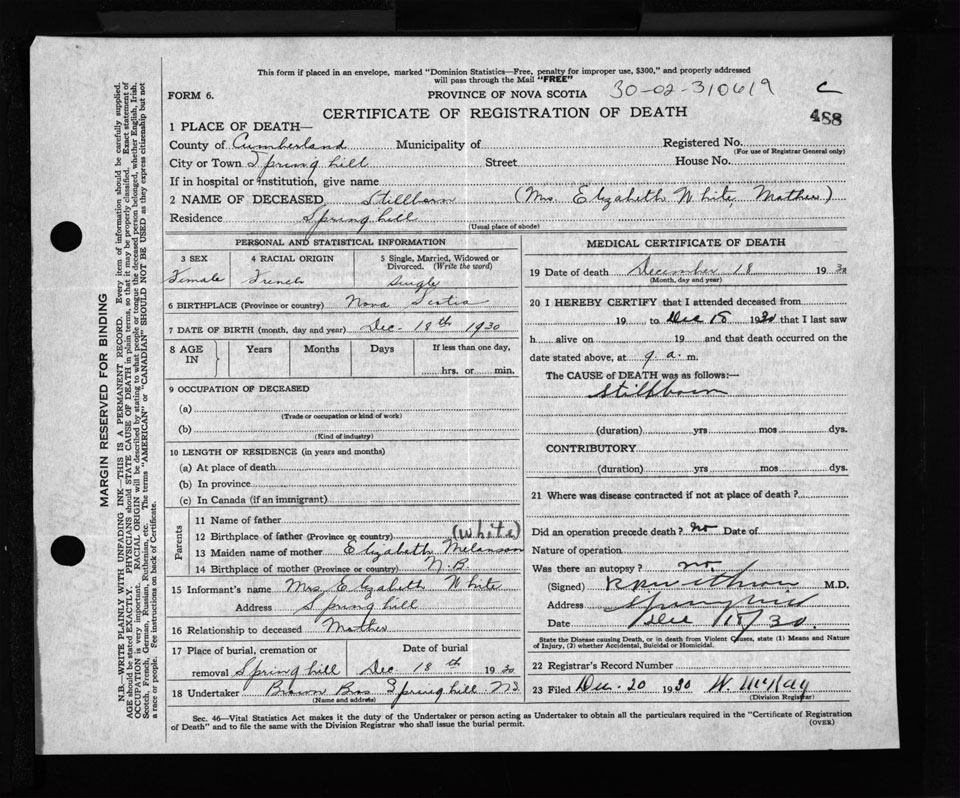 This form if placed in an envelope, marked "Dominion Statistics—Free, penalty for improper use, $300," and properly addressed
will pass through the Mail "FREE"
FORM 6. PROVINCE OF NOVA SCOTIA 30-02-310619 C
CERTIFICATE OF REGISTRATION OF DEATH 488
1 PLACE OF DEATH—
County of Cumberland Municipality of Registered No.
(For use of Registrar General only)
City or Town Springhill Street House No.
If in hospital or institution, give name
2 NAME OF DECEASED Stillborn (Mrs. Elizabeth White Mother)
Residence Springhill
(Usual place of abode)
PERSONAL AND STATISTICAL INFORMATION
3 SEX 4 RACIAL ORIGIN 5 Single, Married, Widowed or
Divorced. (Write the word)
Female French Single
6 BIRTHPLACE (Province or country) Nova Scotia
7 DATE OF BIRTH (month, day and year) Dec. 18th 1930
8 AGE IN Years Months Days If less than one day,
hrs. or min.
9 OCCUPATION OF DECEASED
(a)
(Trade or occupation or kind of work)
(b)
(Kind of industry)
10 LENGTH OF RESIDENCE (in years and months)
(a) At place of death
(b) In province
(c) In Canada (if an immigrant)
Parents
11 Name of father
12 Birthplace of father (Province or country) (White)
13 Maiden name of mother Elizabeth Melanson
14 Birthplace of mother (Province or country) N.B.
15 Informant's name Mrs Elizabeth White
Address Springhill
16 Relationship to deceased Mother
17 Place of burial, cremation or Date of burial
removal Springhill Dec. 18th 1930
18 Undertaker Brown Bros Springhill NS
(Name and address)
MEDICAL CERTIFICATE OF DEATH
19 Date of death December 18 1930
(Month, day and year)
20 I HEREBY CERTIFY that I attended deceased from
19 to Dec 18 1930 that I last saw
h alive on 19 and that death occurred on the
date stated above, at 9 a. m.
The CAUSE of DEATH was as follows:—
Stillborn
(duration) yrs mos dys.
CONTRIBUTORY
(duration) yrs mos dys.
21 Where was disease contracted if not at place of death?
Did an operation precede death? no Date of
Nature of operation
Was there an autopsy? no
(Signed) M.D.
Address Springhill
Date Dec 18/30.
State the Disease causing Death, or in death from Violent Causes, state (1) Means and Nature
of Injury, (2) whether Accidental, Suicidal or Homicidal.
22 Registrar's Record Number
23 Filed Dec. 20 1930 W. McKay
(Division Registrar)
Sec. 46—Vital Statistics Act makes it the duty of the Undertaker or person acting as Undertaker to obtain all the particulars required in the "Certificate of Registration
of Death" and to file the same with the Division Registrar who shall issue the burial permit. (OVER)
MARGIN RESERVED FOR BINDING
N.B.—WRITE PLAINLY WITH UNFADING INK—THIS IS A PERMANENT RECORD. Every item of information should be carefully supplied.
AGE should be stated EXACTLY. PHYSICIANS should STATE CAUSE OF DEATH in plain terms, so that it may be properly classified. Exact statement of
OCCUPATION is very important. RACIAL ORIGIN will be described by stating to what people or tongue the deceased person belonged, whether English, Irish,
Scotch, French, German, Russian, Ruthenian, etc. The terms "AMERICAN" or "CANADIAN" SHOULD NOT BE USED as they express citizenship but not
a race or people. See instructions on back of Certificate.